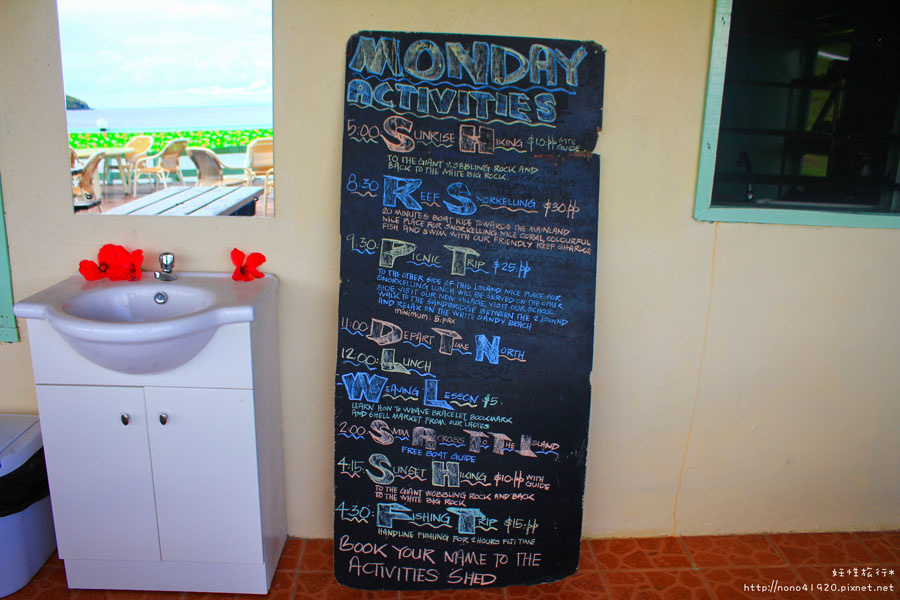 MONDAY
ACTIVITIES
5:00: SUNRISE HIKING $10.PP WITH GUIDE
TO THE GIANT WOBBLING ROCK AND
BACK TO THE WHITE BIG ROCK
8:30 REEF SNORKELLING $30.PP
20 MINUTES BOAT RIDE TOWARDS THE MAINLAND
NICE PLACE FOR SNORKELLING NICE CORAL, COLOURFUL
FISH AND SWIM WITH OUR FRIENDLY REEF SHARKS
9:30: PICNIC TRIP $25.PP
TO THE OTHER SIDE OF THIS ISLAND NICE PLACE FOR
SNORKELLING LUNCH WILL BE SERVED ON THE OTHER
SIDE VISIT OUR NEW VILLAGE, VISIT OUR SCHOOL
WALK TO THE SANDBRIDGE BETWEEN THE 2 ISLAND
AND RELAX ON THE WHITE SANDY BEACH
minimum: 5.pax
11:00: DEPART TIME NORTH
12:00: LUNCH
WEAVING LESSON $5.
LEARN HOW TO WEAVE BRACELET, BOOKMARK
AND SHELL MARKET FROM OUR LADIES
2:00: SWIM ACROSS TO THE ISLAND
FREE BOAT GUIDE
4:15: SUNSET HIKING $10.PP WITH GUIDE
TO THE GIANT WOBBLING ROCK AND BACK
TO THE WHITE BIG ROCK
4:30: FISHING TRIP $15.PP
HANDLINE FISHING FOR 2 HOURS FIJI TIME
BOOK YOUR NAME TO THE
ACTIVITIES SHED
妊性旅行*
http://nono41920.pixnet.net